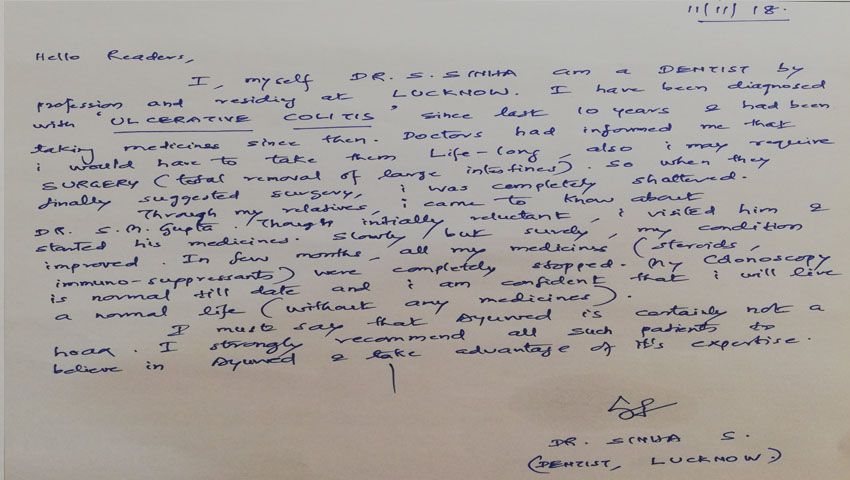 11/11/18.
Hello Readers,
I, myself DR. S. SINHA am a DENTIST by
profession and residing at LUCKNOW. I have been diagnosed
with 'ULCERATIVE COLITIS' since last 10 years & had been
taking medicines since then. Doctors had informed me that
i would have to take them Life-long, also i may require
SURGERY (total removal of large intestines). So when they
finally suggested surgery, i was completely shattered.
Through my relatives, i came to know about
DR. S. M. Gupta. Though initially reluctant, i visited him &
started his medicines. Slowly but surely, my condition
improved. In few months, all my medicines (steroids,
immuno-suppressants) were completely stopped. My Colonoscopy
is normal till date and i am confident that i will live
a normal life (without any medicines).
I must say that Ayurved is certainly not a
hoax. I strongly recommend all such patients to
believe in Ayurved & take advantage of it's expertise.
DR. SINHA S.
(DENTIST, LUCKNOW.)